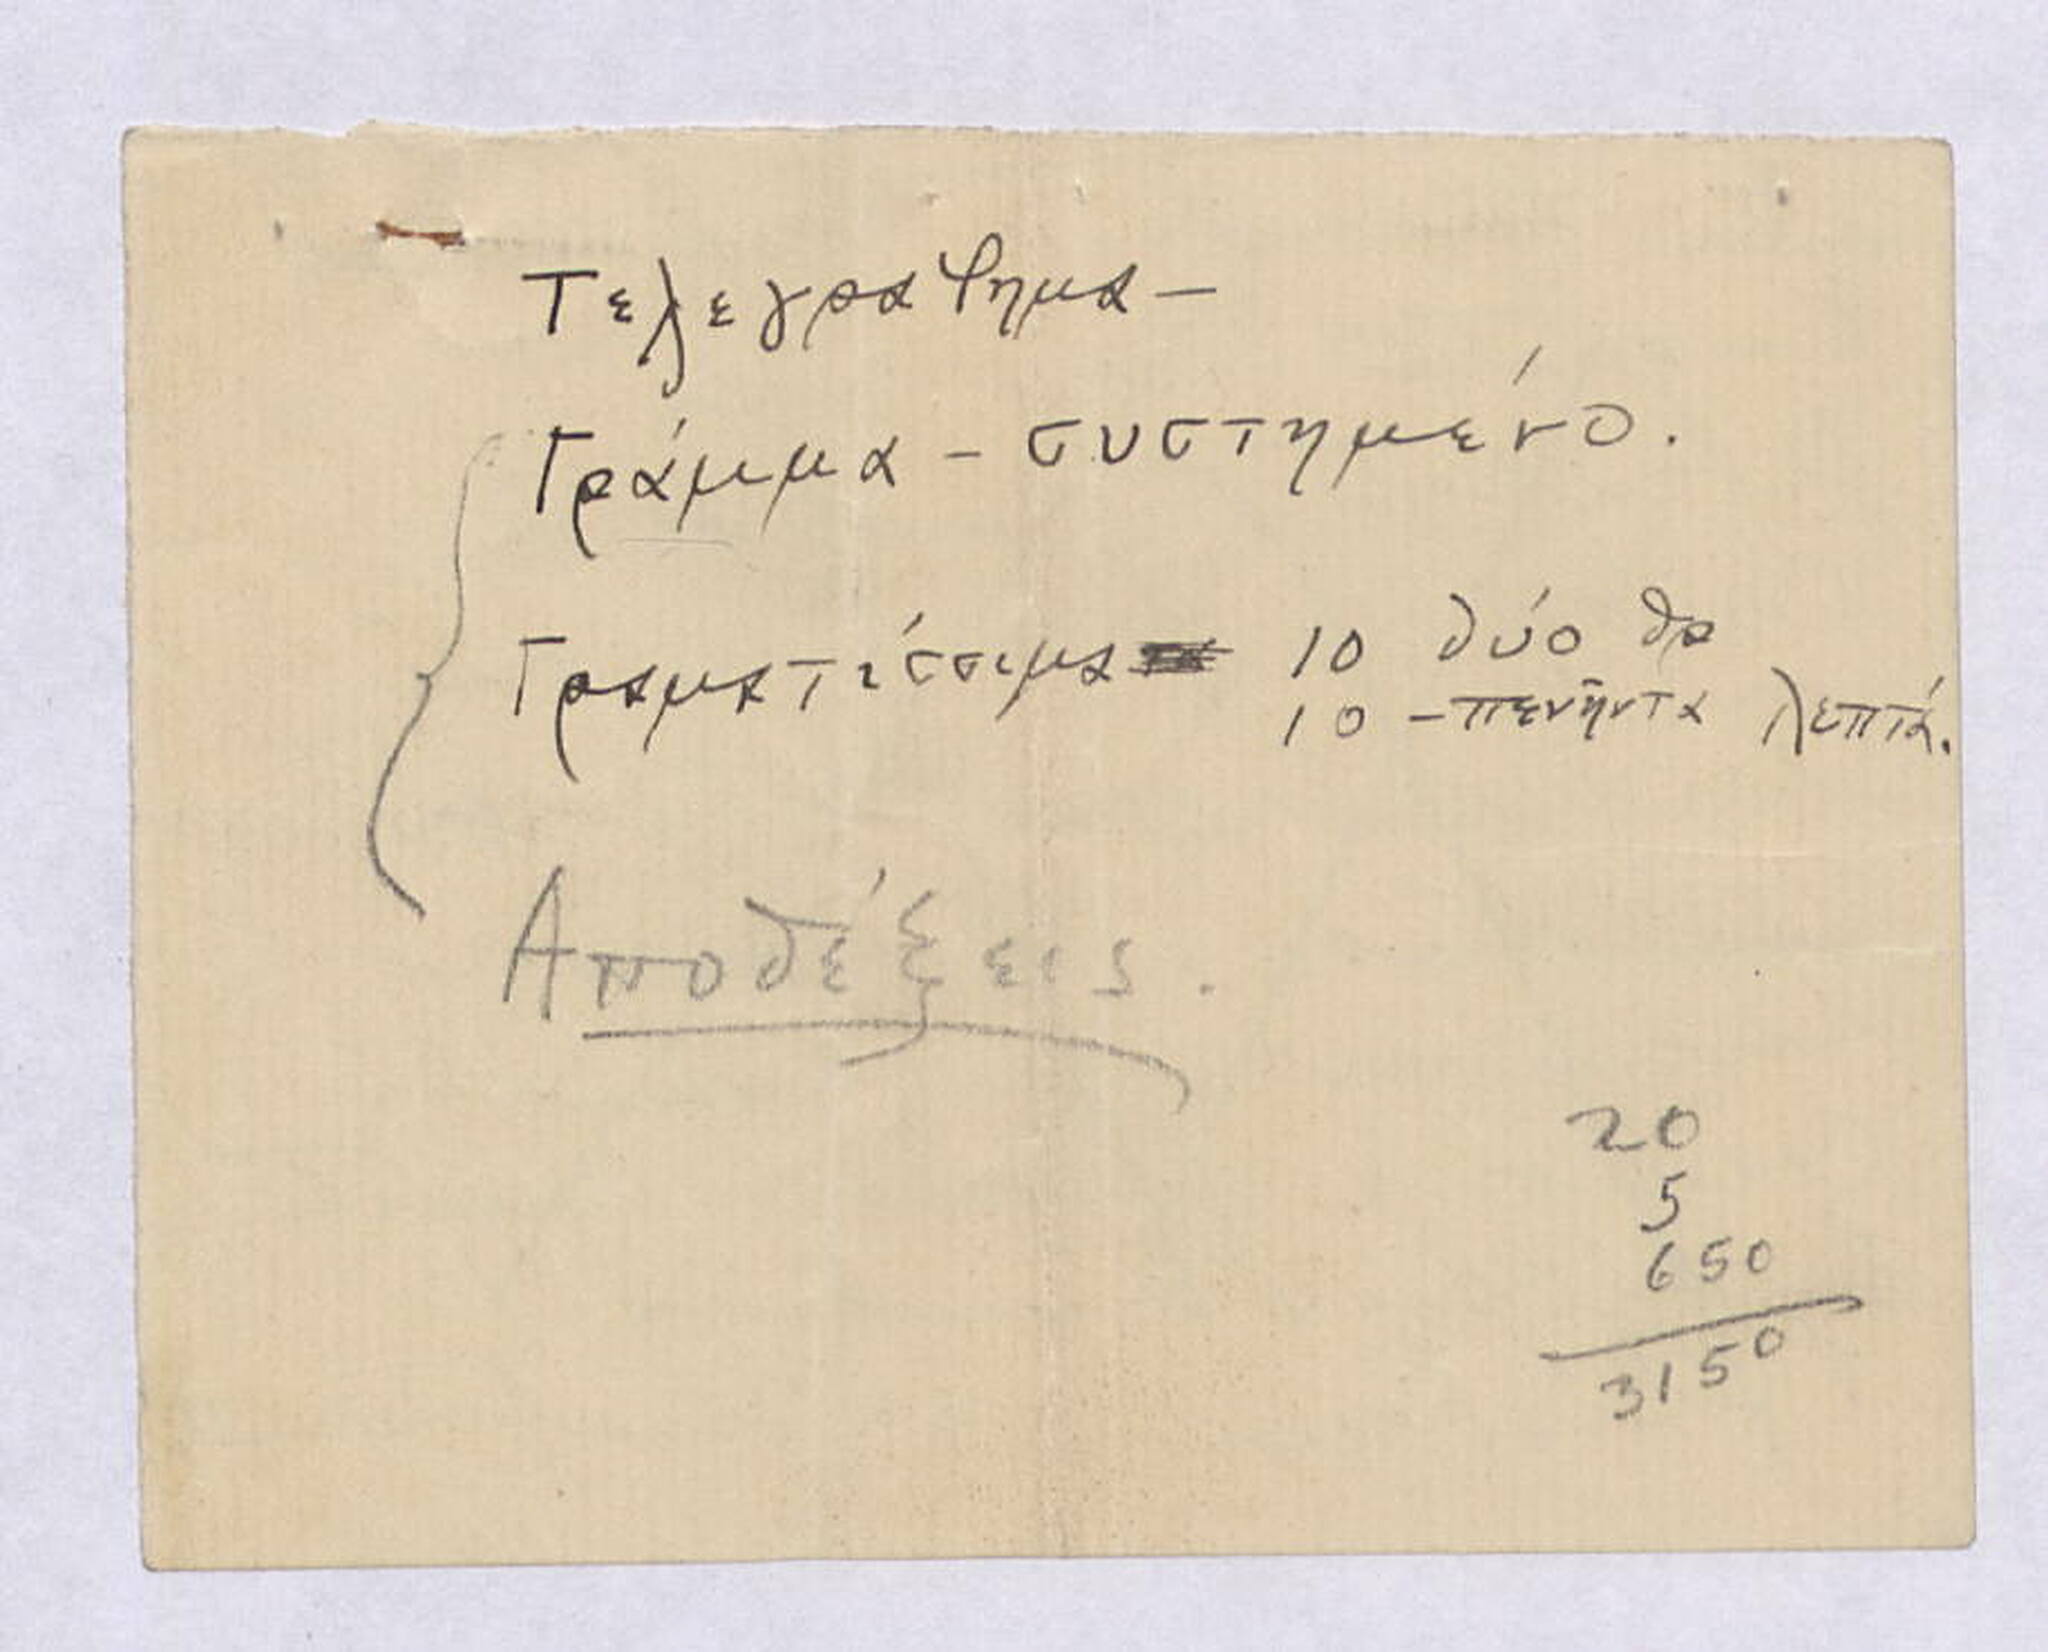 Τελεγραφημα —
Γράμμα – συστημένο.
Γραματίσσιμα 10 δύο δρ
10 – πενῆντα λεπτά.
Αποδέξεις.
20
5
650
3150